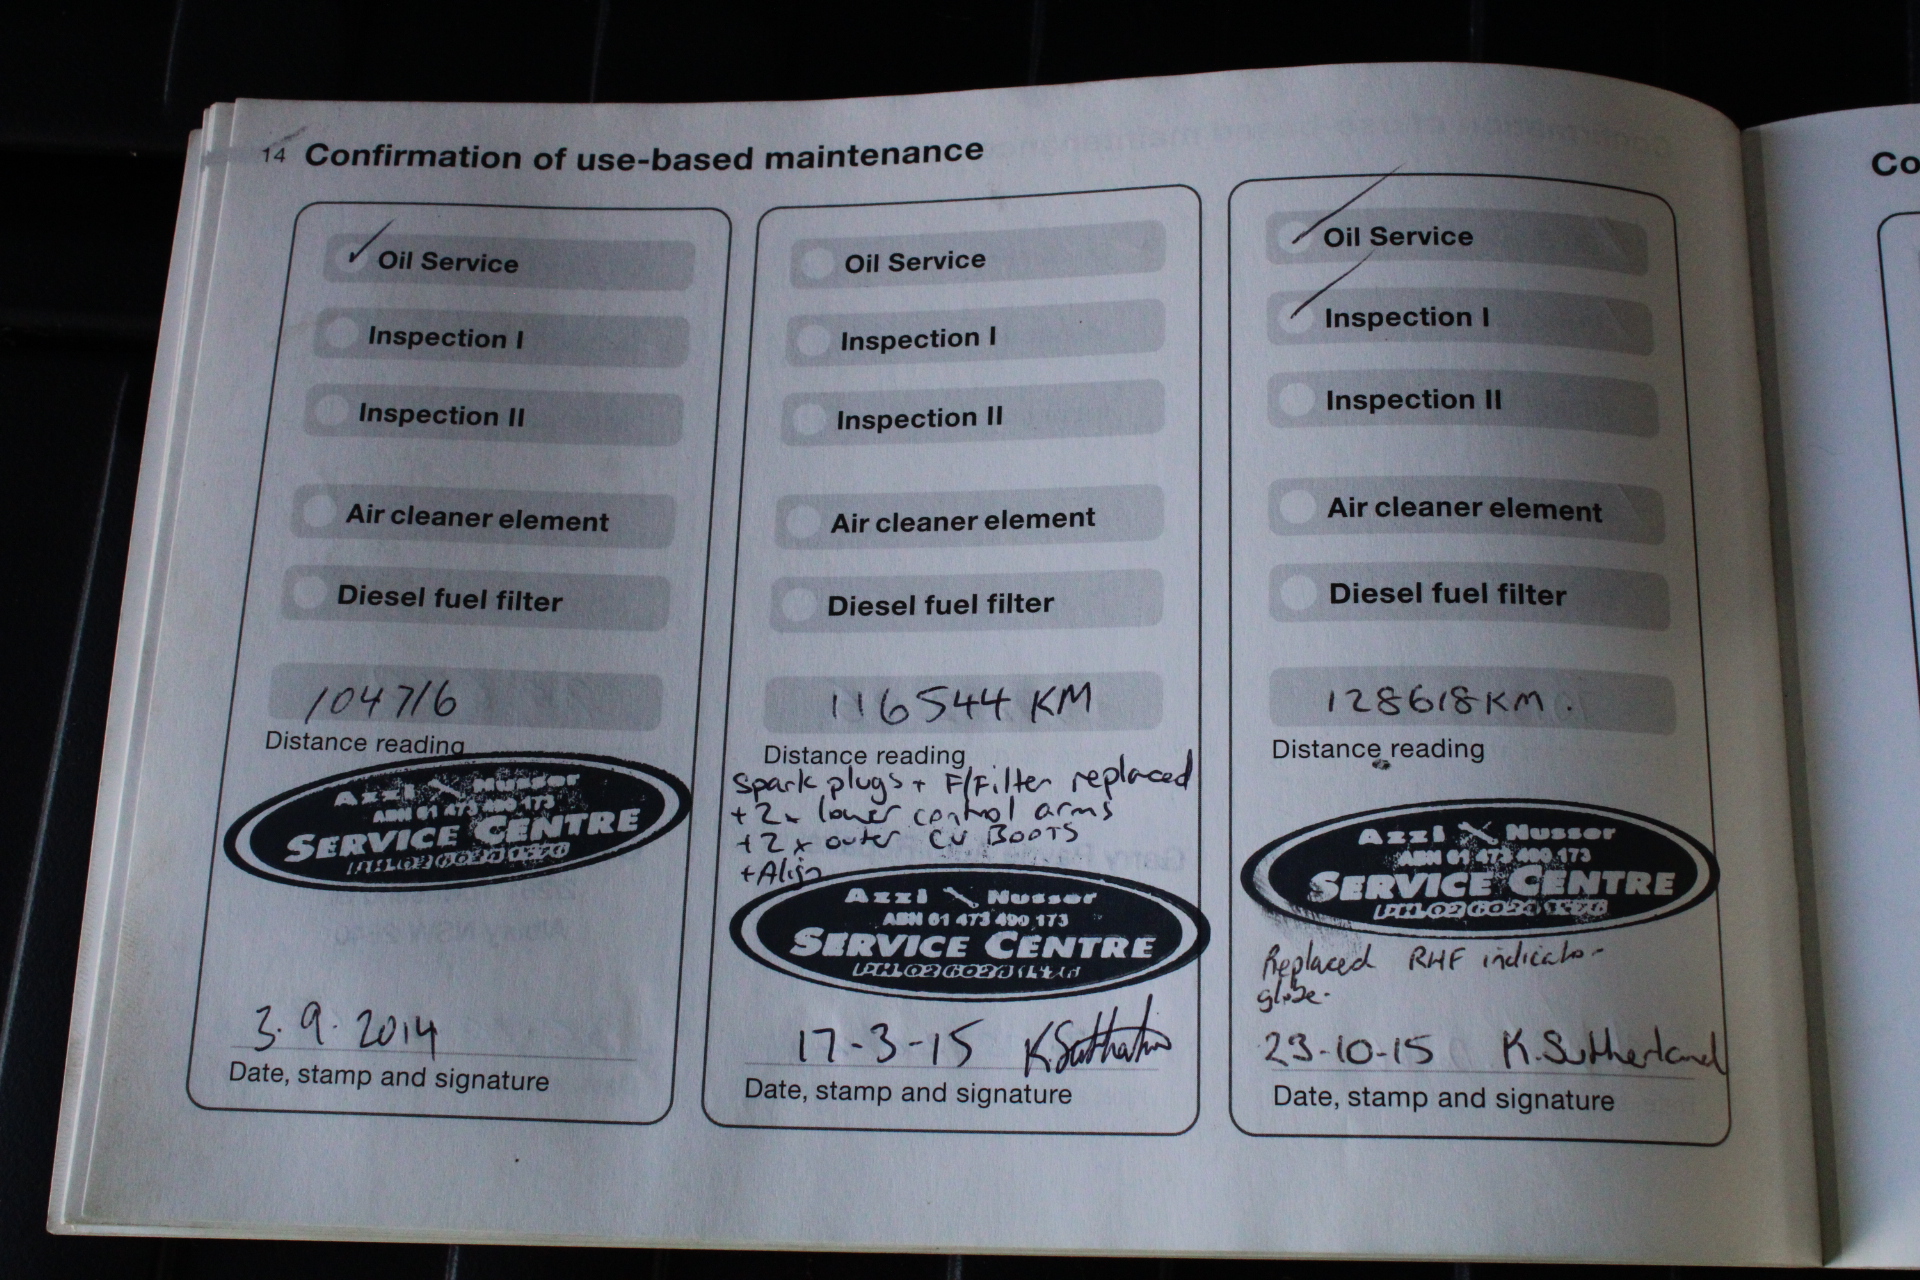 14 Confirmation of use-based maintenance
Oil Service
Inspection I
Inspection II
Air cleaner element
Diesel fuel filter
104716
Distance reading
Azzi Nusser
ABN 61 473 490 173
SERVICE CENTRE
3.9.2014
Date, stamp and signature
Oil Service
Inspection I
Inspection II
Air cleaner element
Diesel fuel filter
116544 KM
Distance reading
Spark plugs + F/Filter replaced
+ 2x lower control arms
+ 2x outer CV BOOTS
+ Align
Azzi Nusser
ABN 61 473 490 173
SERVICE CENTRE
17-3-15 K.Sutherland
Date, stamp and signature
Oil Service
Inspection I
Inspection II
Air cleaner element
Diesel fuel filter
128618KM.
Distance reading
Azzi Nusser
ABN 61 473 490 173
SERVICE CENTRE
Replaced RHF indicator
globe.
23-10-15 K.Sutherland
Date, stamp and signature
Co